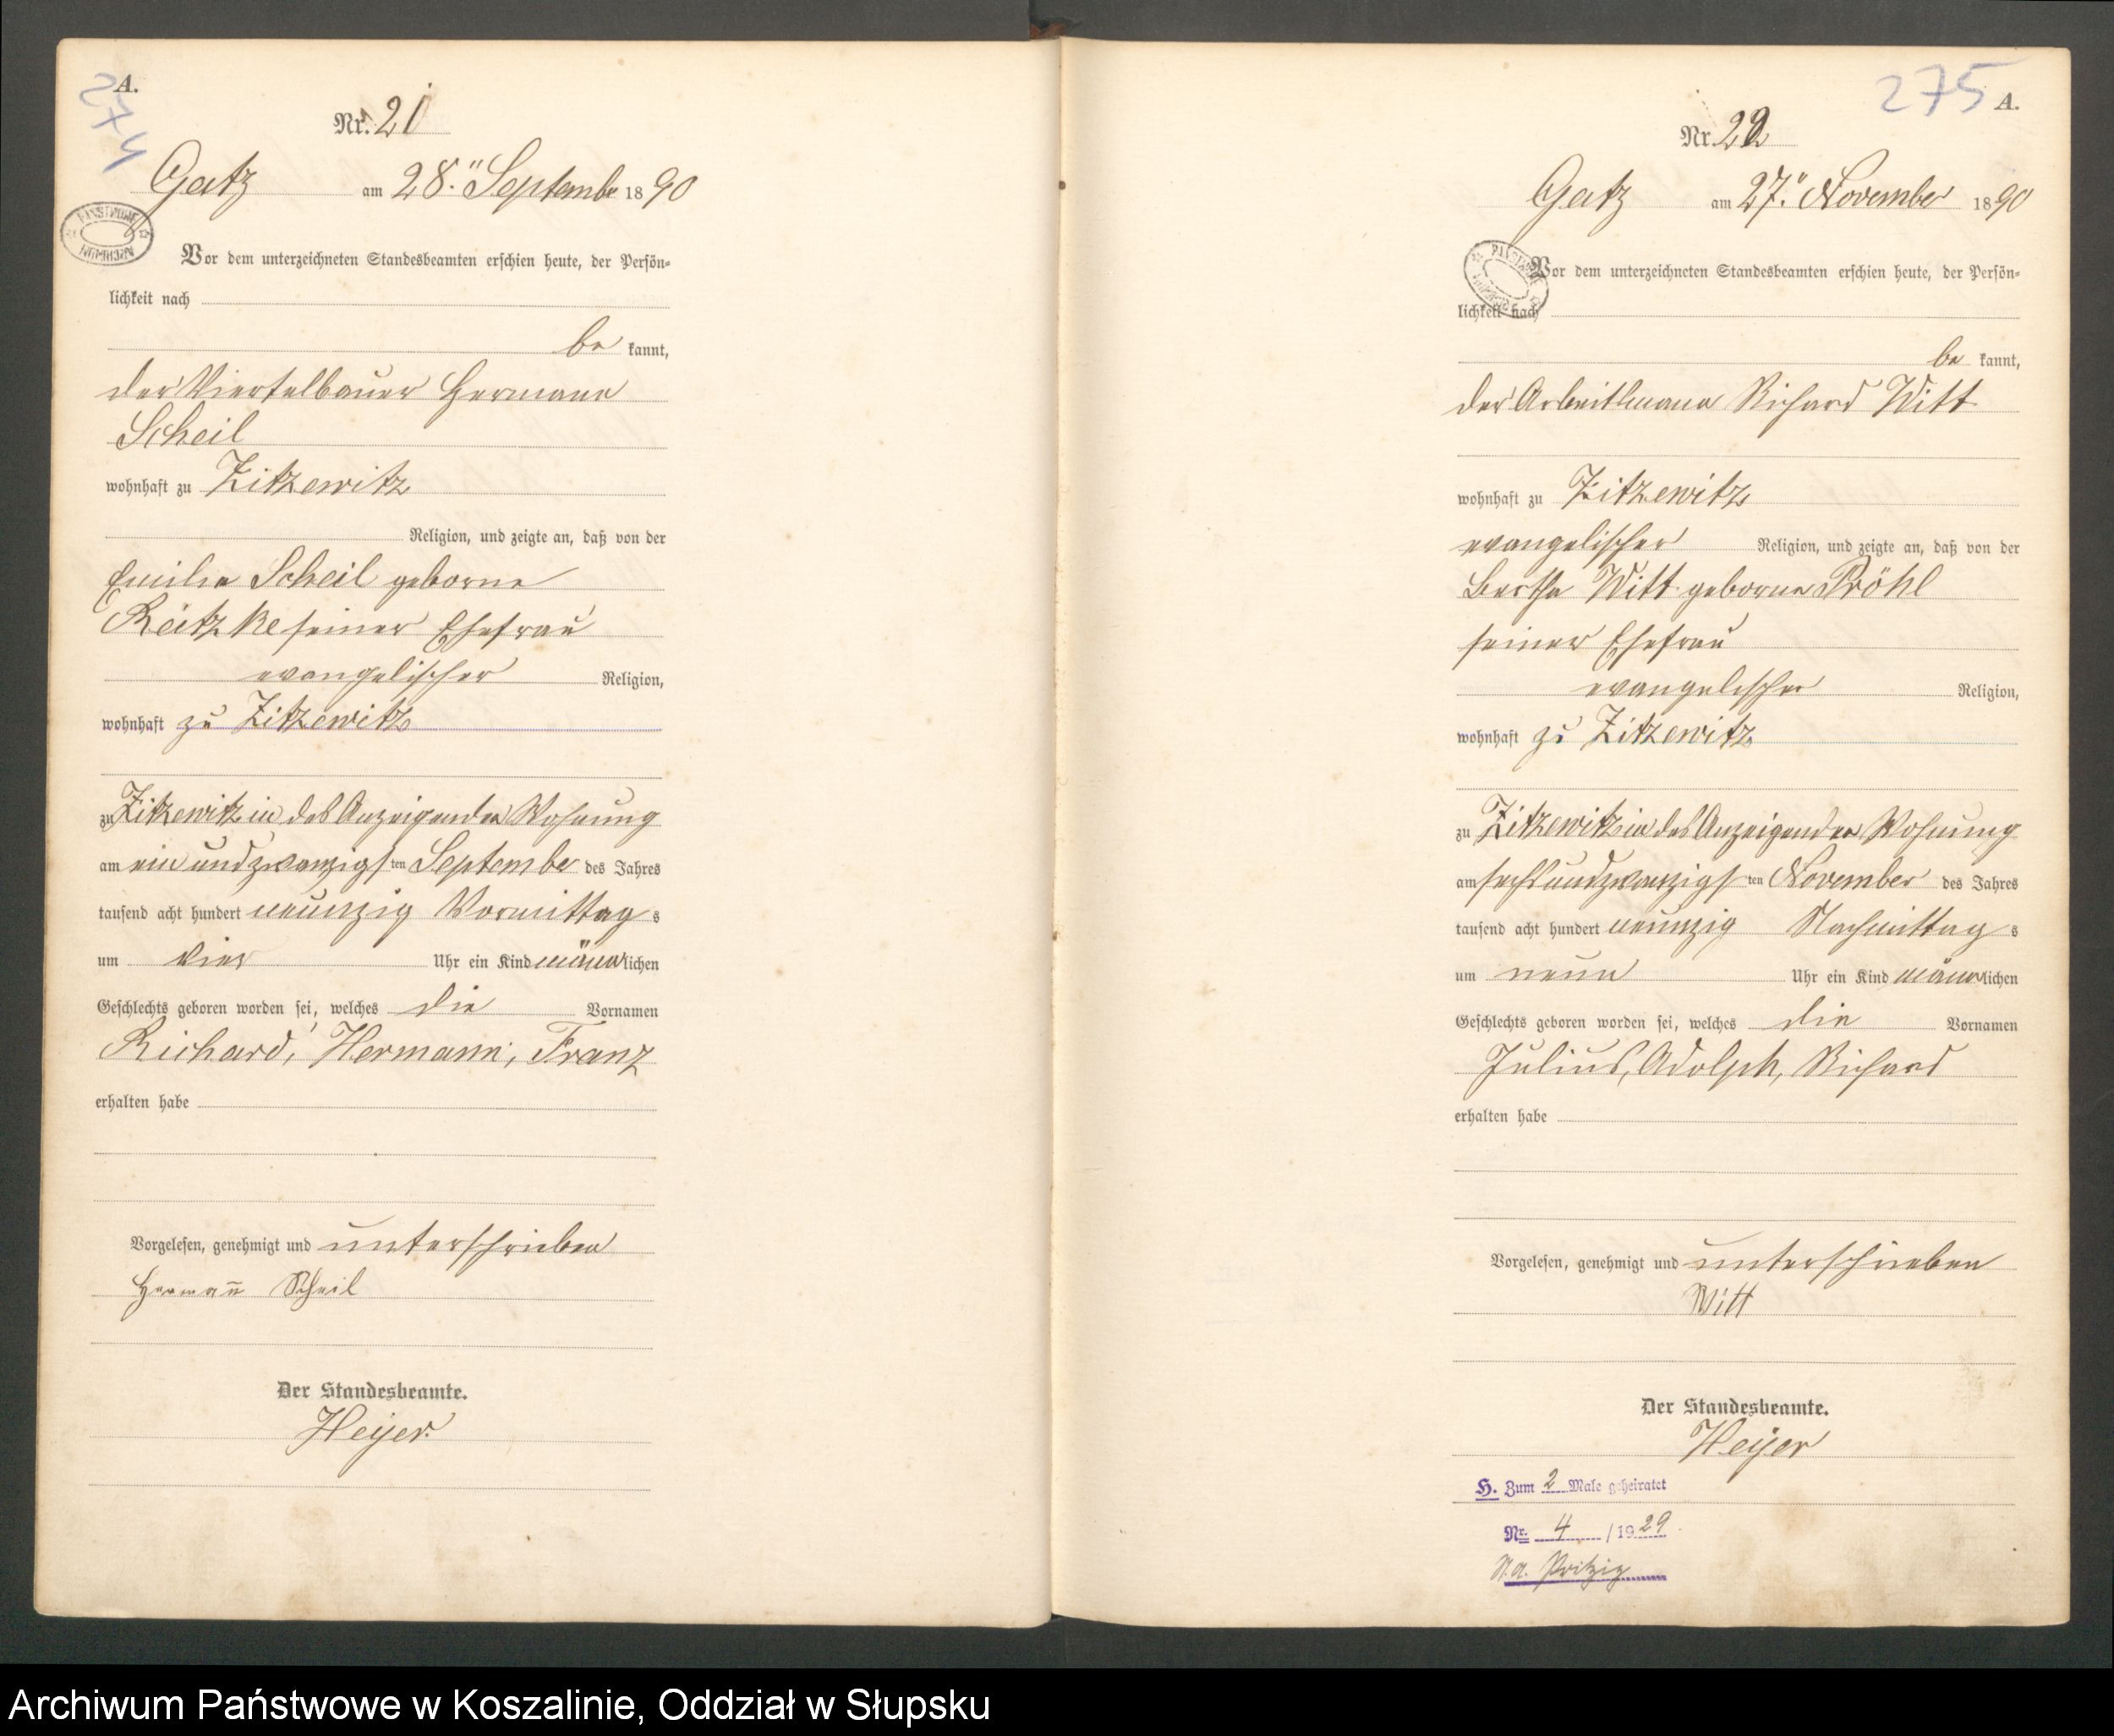 274
A.
Nr. 21
Gatz am 28.ten September 1890
Vor dem unterzeichneten Standesbeamten erschien heute, der Persön-
lichkeit nach
be kannt,
der Viertelbauer Hermann
Scheil
wohnhaft zu Zitzewitz
Religion, und zeigte an, daß von der
Emilie Scheil geborne
Reitzke seiner Ehefrau
evangelischer Religion,
wohnhaft zu Zitzewitz
zu Zitzewitz in des Anzeigenden Wohnung
am ein und zwanzigsten September des Jahres
tausend acht hundert neunzig Vormittags
um vier Uhr ein Kind männlichen
Geschlechts geboren worden sei, welches die Vornamen
Richard, Hermann, Franz
erhalten habe
Vorgelesen, genehmigt und unterschrieben
Hermann Scheil
Der Standesbeamte.
Heyer.
275
A.
Nr. 22
Gatz am 27.ten November 1890
Vor dem unterzeichneten Standesbeamten erschien heute, der Persön-
lichkeit nach
be kannt,
der Arbeitsmann Richard Witt
wohnhaft zu Zitzewitz
evangelischer Religion, und zeigte an, daß von der
Bertha Witt geborne Pröhl
seiner Ehefrau
evangelischer Religion,
wohnhaft zu Zitzewitz
zu Zitzewitz in des Anzeigenden Wohnung
am sechsundzwanzigsten November des Jahres
tausend acht hundert neunzig Nachmittags
um neun Uhr ein Kind männlichen
Geschlechts geboren worden sei, welches die Vornamen
Julius, Adolph, Richard
erhalten habe
Vorgelesen, genehmigt und unterschrieben
Witt
Der Standesbeamte.
Heyer
H. Zum 2 Male geheiratet
Nr. 4 / 1929
St. A. Pritzig
Archiwum Państwowe w Koszalinie, Oddział w Słupsku